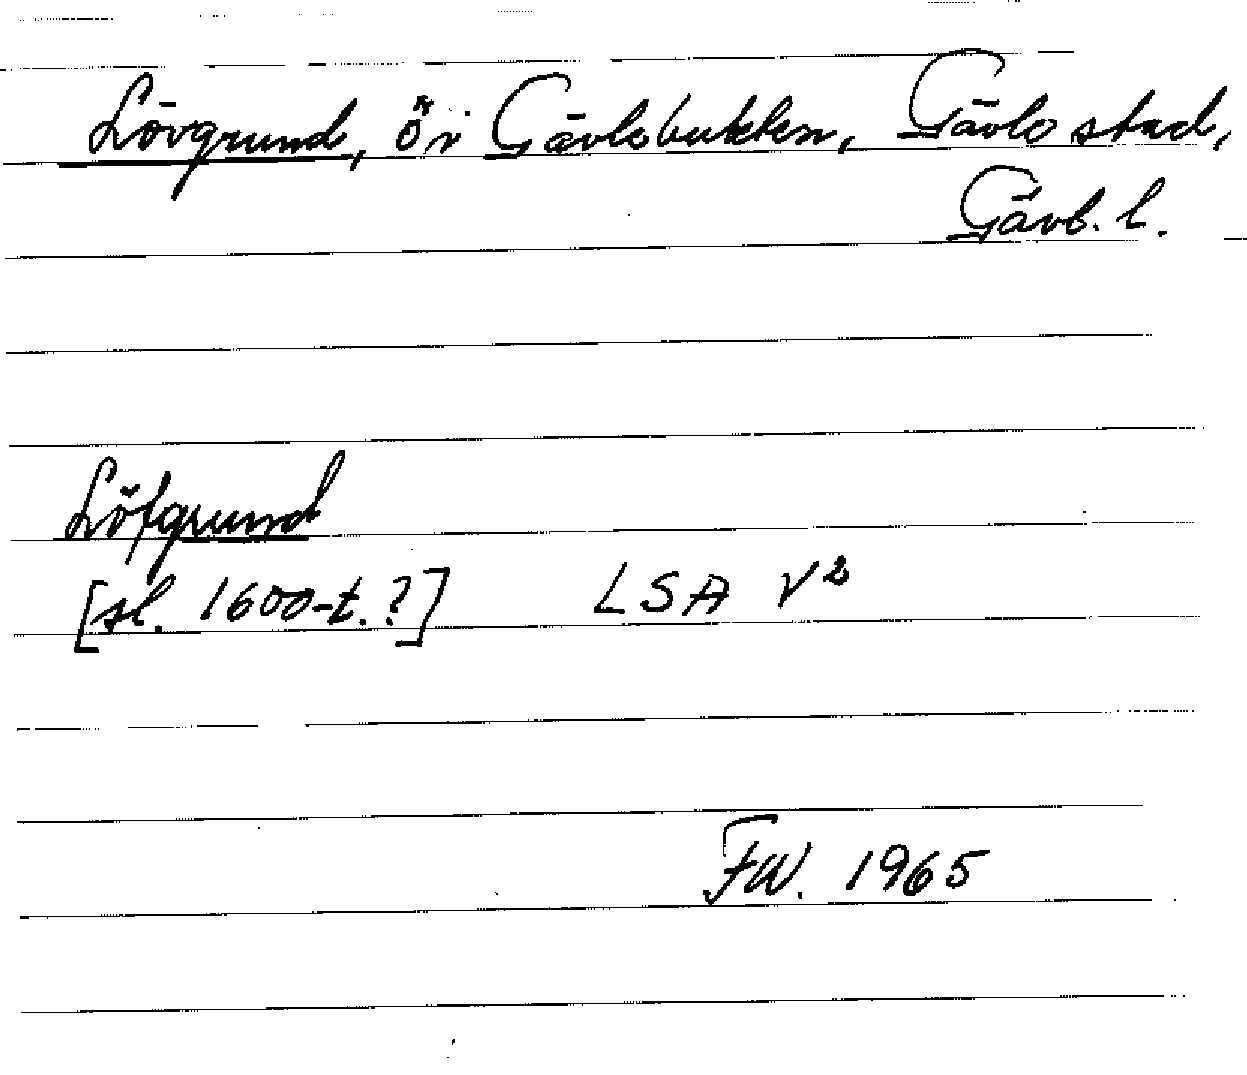 Lövgrund, ö i Gävlebukten, Gävle stad,
Gävb. l.
Löfgrund
[sl. 1600-t.?] LSA V²
FW. 1965